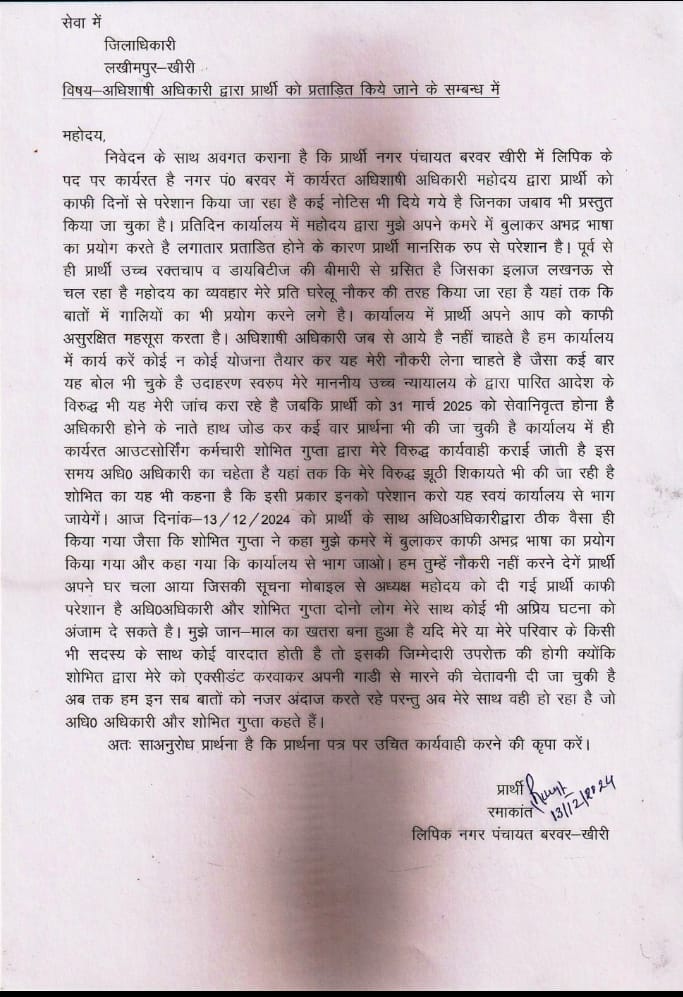 सेवा में
जिलाधिकारी
लखीमपुर–खीरी
विषय–अधिशाषी अधिकारी द्वारा प्रार्थी को प्रताड़ित किये जाने के सम्बन्ध में
महोदय,
निवेदन के साथ अवगत कराना है कि प्रार्थी नगर पंचायत बरवर खीरी में लिपिक के
पद पर कार्यरत है नगर पं0 बरवर में कार्यरत अधिशाषी अधिकारी महोदय द्वारा प्रार्थी को
काफी दिनों से परेशान किया जा रहा है कई नोटिस भी दिये गये है जिनका जबाव भी प्रस्तुत
किया जा चुका है। प्रतिदिन कार्यालय में महोदय द्वारा मुझे अपने कमरे में बुलाकर अभद्र भाषा
का प्रयोग करते है लगातार प्रताडित होने के कारण प्रार्थी मानसिक रुप से परेशान है। पूर्व से
ही प्रार्थी उच्च रक्तचाप व डायबिटीज की बीमारी से ग्रसित है जिसका इलाज लखनऊ से
चल रहा है महोदय का व्यवहार मेरे प्रति घरेलू नौकर की तरह किया जा रहा है यहां तक कि
बातों में गालियों का भी प्रयोग करने लगे है। कार्यालय में प्रार्थी अपने आप को काफी
असुरक्षित महसूस करता है। अधिशाषी अधिकारी जब से आये है नहीं चाहते है हम कार्यालय
में कार्य करें कोई न कोई योजना तैयार कर यह मेरी नौकरी लेना चाहते है जैसा कई बार
यह बोल भी चुके है उदाहरण स्वरुप मेरे माननीय उच्च न्यायालय के द्वारा पारित आदेश के
विरुद्ध भी यह मेरी जांच करा रहे है जबकि प्रार्थी को 31 मार्च 2025 को सेवानिवृत्त होना है
अधिकारी होने के नाते हाथ जोड कर कई वार प्रार्थना भी की जा चुकी है कार्यालय में ही
कार्यरत आउटसोर्सिंग कर्मचारी शोभित गुप्ता द्वारा मेरे विरुद्ध कार्यवाही कराई जाती है इस
समय अधि0 अधिकारी का चहेता है यहां तक कि मेरे विरुद्ध झूठी शिकायते भी की जा रही है
शोभित का यह भी कहना है कि इसी प्रकार इनको परेशान करो यह स्वयं कार्यालय से भाग
जायेगें। आज दिनांक–13/12/2024 को प्रार्थी के साथ अधि0अधिकारीद्वारा ठीक वैसा ही
किया गया जैसा कि शोभित गुप्ता ने कहा मुझे कमरे में बुलाकर काफी अभद्र भाषा का प्रयोग
किया गया और कहा गया कि कार्यालय से भाग जाओ। हम तुम्हें नौकरी नहीं करने देगें प्रार्थी
अपने घर चला आया जिसकी सूचना मोबाइल से अध्यक्ष महोदय को दी गई प्रार्थी काफी
परेशान है अधि0अधिकारी और शोभित गुप्ता दोनो लोग मेरे साथ कोई भी अप्रिय घटना को
अंजाम दे सकते है। मुझे जान–माल का खतरा बना हुआ है यदि मेरे या मेरे परिवार के किसी
भी सदस्य के साथ कोई वारदात होती है तो इसकी जिम्मेदारी उपरोक्त की होगी क्योंकि
शोभित द्वारा मेरे को एक्सीडंट करवाकर अपनी गाडी से मारने की चेतावनी दी जा चुकी है
अब तक हम इन सब बातों को नजर अंदाज करते रहे परन्तु अब मेरे साथ वही हो रहा है जो
अधि0 अधिकारी और शोभित गुप्ता कहते हैं।
अतः साअनुरोध प्रार्थना है कि प्रार्थना पत्र पर उचित कार्यवाही करने की कृपा करें।
प्रार्थी
रमाकांत 13/12/2024
लिपिक नगर पंचायत बरवर–खीरी